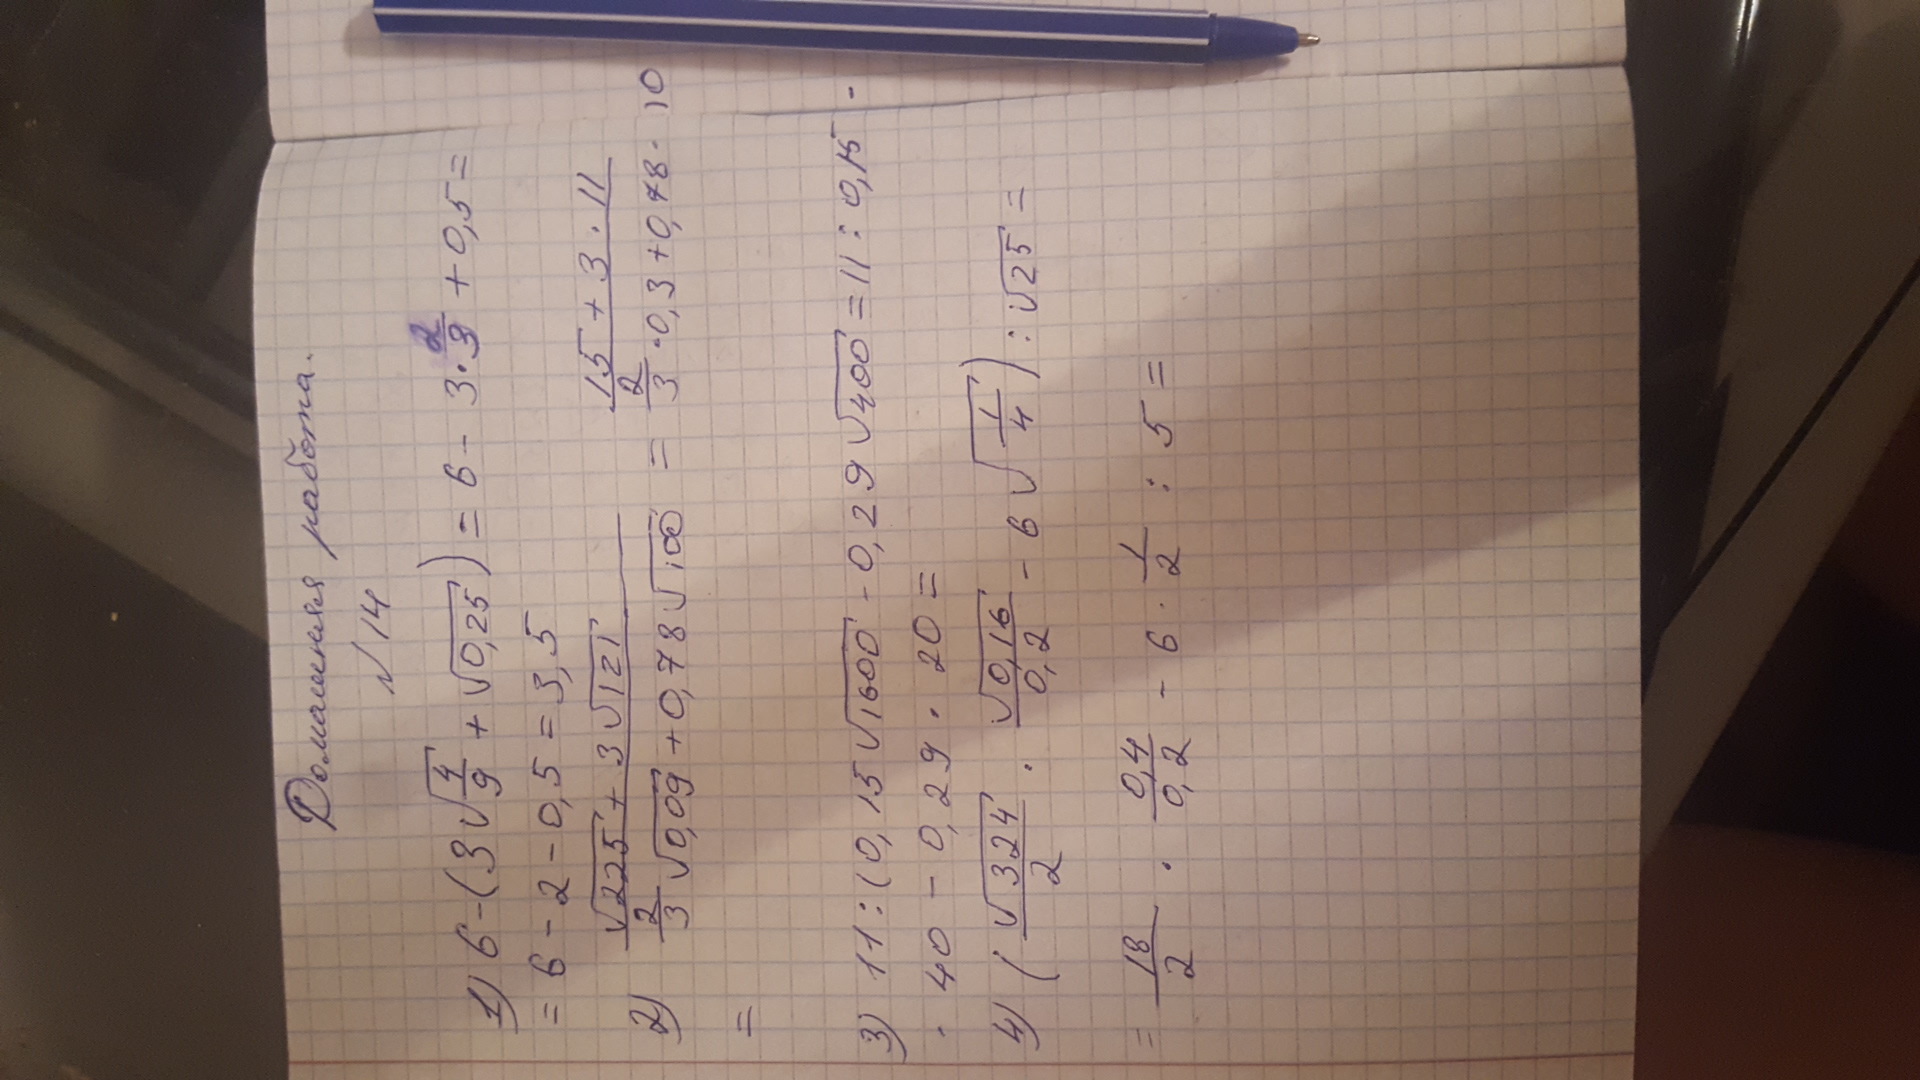 Домашняя работа.
√14
1) 6-(3√(4/9) + √0,25) = 6 - 3·2/3 + 0,5 =
= 6 - 2 - 0,5 = 3,5
2) (√225 + 3√121)/(2/3 √0,09 + 0,78√100) = (15 + 3 · 11)/(2/3 · 0,3 + 0,78 · 10)
=
3) 11 : (0,15√1600 - 0,29√400 = 11 : 0,15 ·
· 40 - 0,29 · 20 =
4) (√324/2 · √0,16/0,2 - 6√(1/4)) : √25 =
= 18/2 · 0,4/0,2 - 6 · 1/2 : 5 =